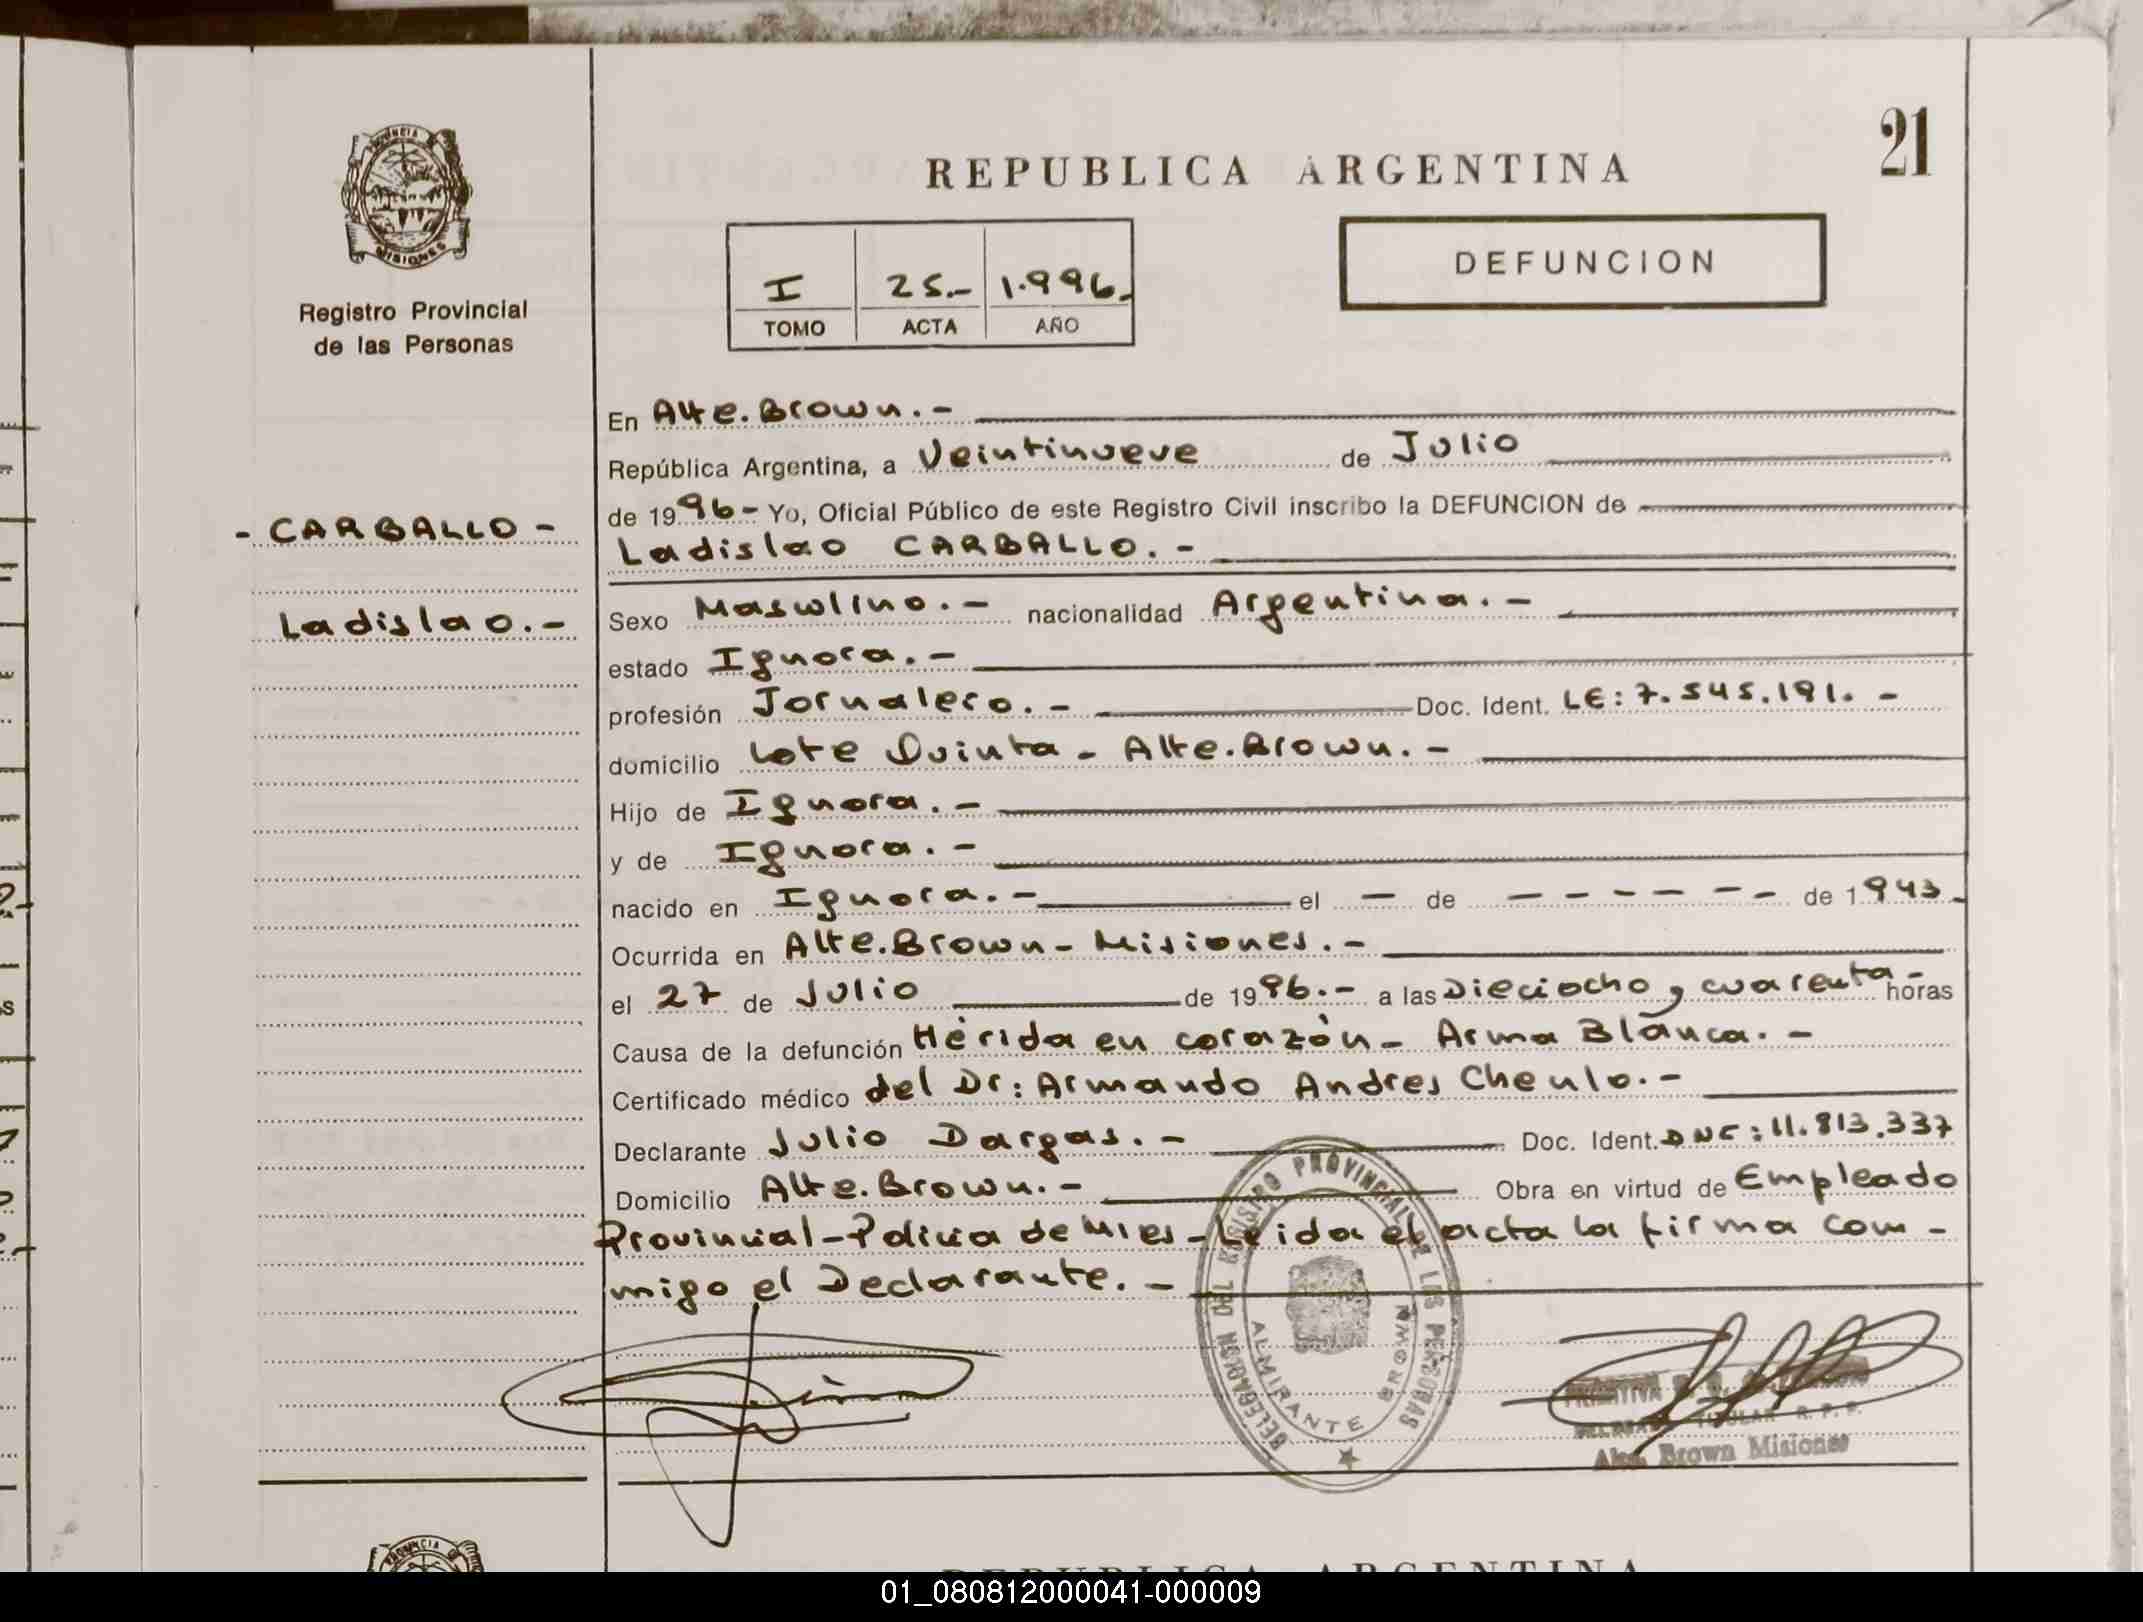 PROVINCIA DE
MISIONES
Registro Provincial
de las Personas
REPUBLICA ARGENTINA
21
I 25.- 1.996.
TOMO ACTA AÑO
DEFUNCION
En Alte. Brown.-
República Argentina, a Veintinueve de Julio
de 1996- Yo, Oficial Público de este Registro Civil inscribo la DEFUNCION de
- CARBALLO -
Ladislao CARBALLO.-
Ladislao.-
Sexo Masculino.- nacionalidad Argentina.-
estado Ignora.-
profesión Jornalero.- Doc. Ident. LE: 7.545.191.-
domicilio Lote Quinta - Alte. Brown.-
Hijo de Ignora.-
y de Ignora.-
nacido en Ignora.- el - de - - - - - - de 1943-
Ocurrida en Alte. Brown - Misiones.-
el 27 de Julio de 1996.- a las Dieciocho y cuarenta- horas
Causa de la defunción Hérida en corazón - Arma Blanca.-
Certificado médico del Dr: Armando Andres Cheulo.-
Declarante Julio Dargas.- Doc. Ident. DNI: 11.813.337
Domicilio Alte. Brown.- Obra en virtud de Empleado
Provincial - Policia de Mnes - Leida el acta la firma con-
migo el Declarante.-
DELEGACION DEL REGISTRO PROVINCIAL DE LAS PERSONAS
ALMIRANTE BROWN
TITULAR R. P. P.
Alte. Brown Misiones
PROVINCIA DE
REPUBLICA ARGENTINA
01_080812000041-000009